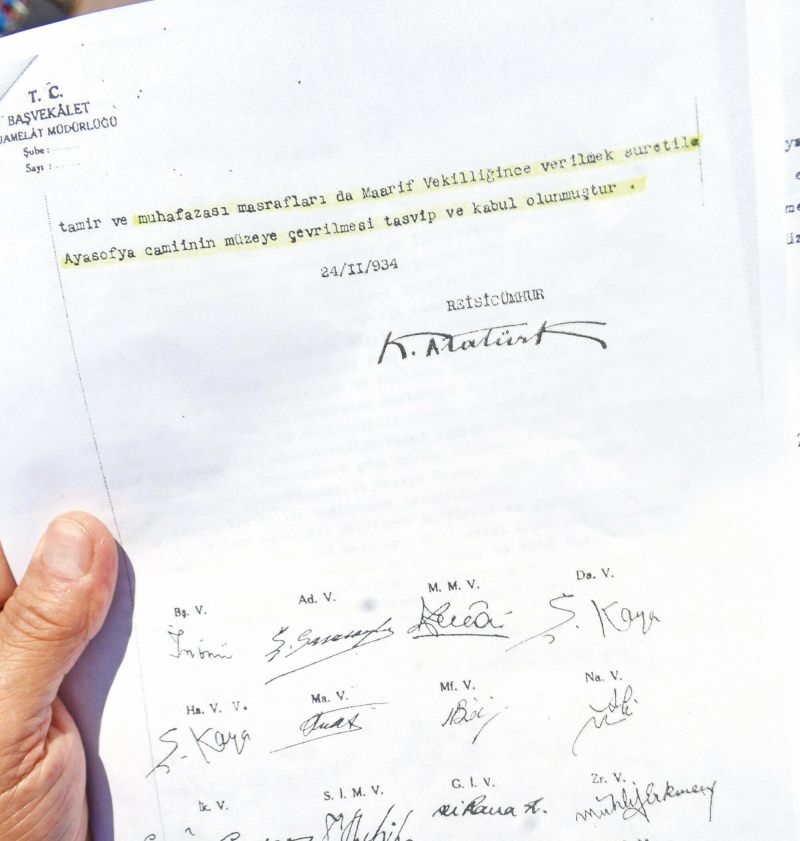 T. C.
BAŞVEKÂLET
UAMELÂT MÜDÜRLÜĞÜ
Şube:
Sayı:
tamir ve muhafazası masrafları da Maarif Vekilliğince verilmek suretile
Ayasofya camiinin müzeye çevrilmesi tasvip ve kabul olunmuştur .
24/II/934
REİSİCÜMHUR
K. Atatürk
Bş. V. Ad. V. M. M. V. Da. V.
İnönü Ş. Saracoğlu Ş. Kaya
Ha. V. V. Ma. V. Mf. V. Na. V.
Ş. Kaya
İk. V. S. İ. M. V. G. İ. V. Zr. V.
Muhlis Erkmen